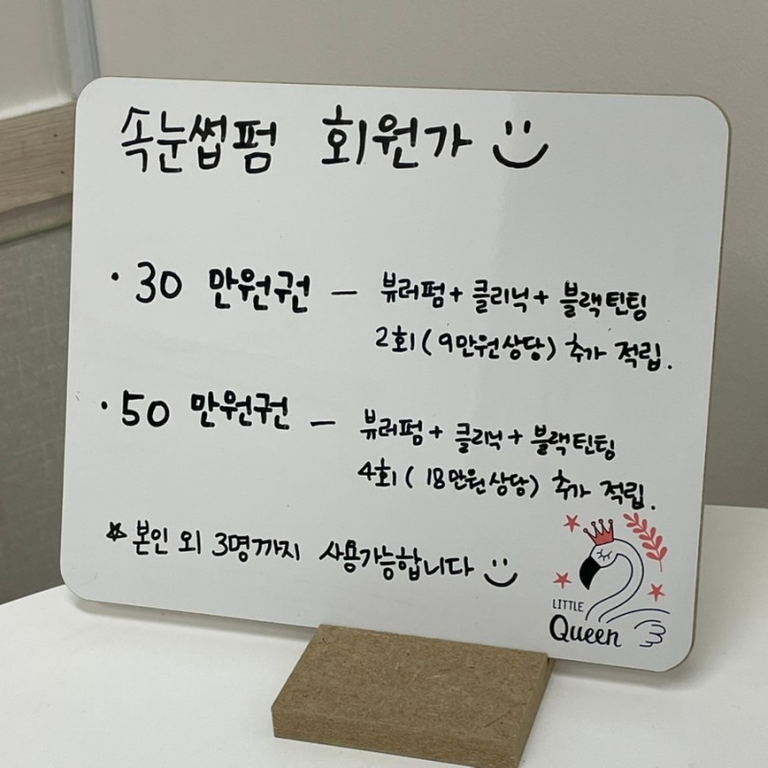 속눈썹펌 회원가
· 30 만원권 – 뷰러펌 + 클리닉 + 블랙틴팅
2회 (9만원상당) 추가 적립.
· 50 만원권 – 뷰러펌 + 클리닉 + 블랙틴팅
4회 (18만원상당) 추가 적립.
* 본인 외 3명까지 사용가능합니다
LITTLE
Queen